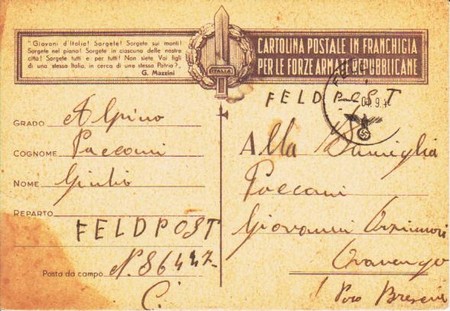 "Giovani d'Italia! Sorgete! Sorgete sui monti!
Sorgete nel piano! Sorgete in ciascuna delle nostre
città! Sorgete tutti e per tutti! Non siete Voi figli
di una stessa Italia, in cerca di una stessa Patria?"
G. Mazzini
ITALIA
CARTOLINA POSTALE IN FRANCHIGIA
PER LE FORZE ARMATE REPUBBLICANE
FELDPOST
GRADO Alpino
COGNOME Paccani
NOME Giulio
REPARTO
FELDPOST
Posta da campo N. 86447
C.
Alla Famiglia
Paccani
Giovanni
Brescia